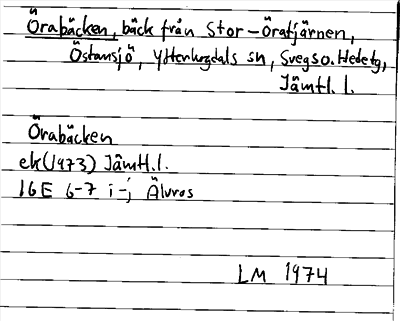 Örabäcken, bäck från Stor-Öratjärnen,
Östansjö, Ytterhogdals sn, Svegs o. Hede tg,
Jämtl. l.
Örabäcken
ek (1973) Jämtl. l.
16E 6-7 i-j Älvros
LM 1974